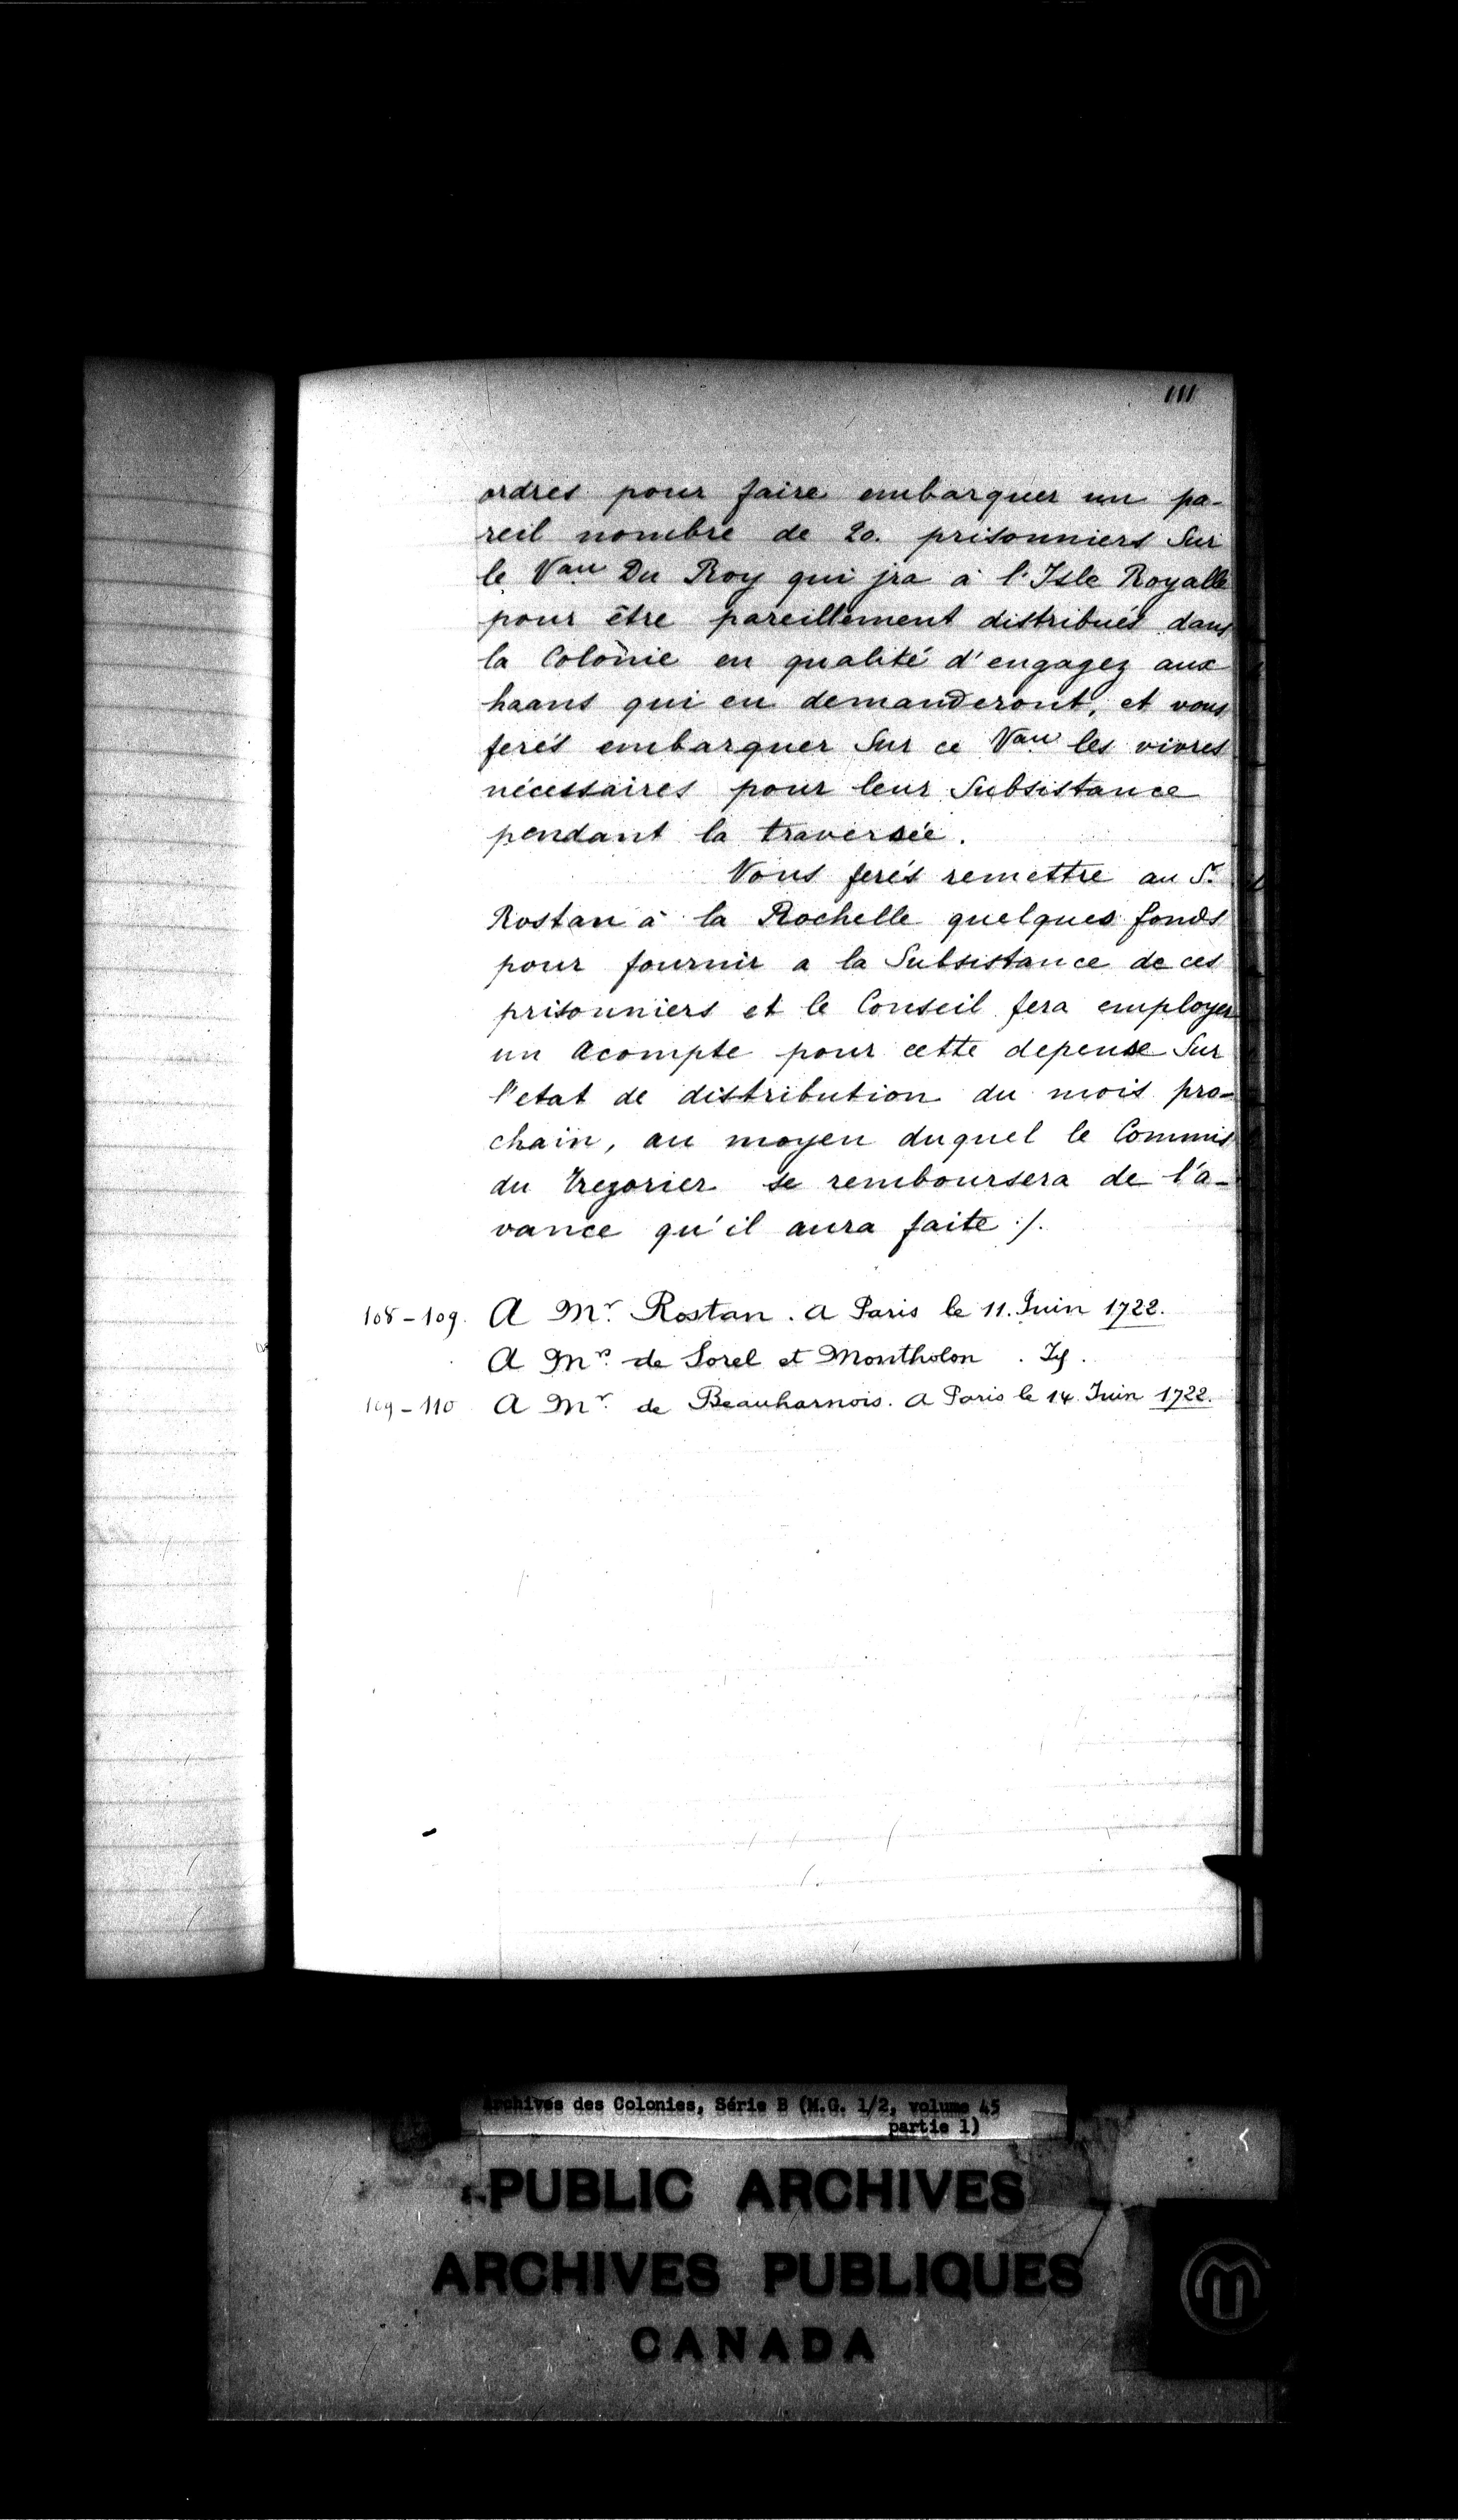 111
ordres pour faire embarquer un pa-
reil nombre de 20. prisonniers Sur
le Vau Du Roy qui jra à l'Isle Royalle
pour être pareillement distribués dans
la Colonie en qualité d'engagez aux
haans qui en demanderont, et vous
ferés embarquer Sur ce Vau les vivres
nécessaires pour leur Subsistance
pendant la traversée.
Vous ferés remettre au Sr.
Rostan à la Rochelle quelques fonds
pour fournir a la Subsistance de ces
prisonniers et le Conseil fera employer
un acompte pour cette depense Sur
l'etat de distribution du mois pro-
chain, au moyen duquel le Commis
du Trezorier se remboursera de l'a-
vance qu'il aura faite ./.
108 - 109. A Mr. Rostan. a Paris le 11. Juin 1722.
A Mrs. de Sorel et Montholon.
109 - 110 A Mr. de Beauharnois. a Paris le 14. Juin 1722.
Archives des Colonies, Série B (M.G. 1/2, volume 45
partie 1)
PUBLIC ARCHIVES
ARCHIVES PUBLIQUES
CANADA